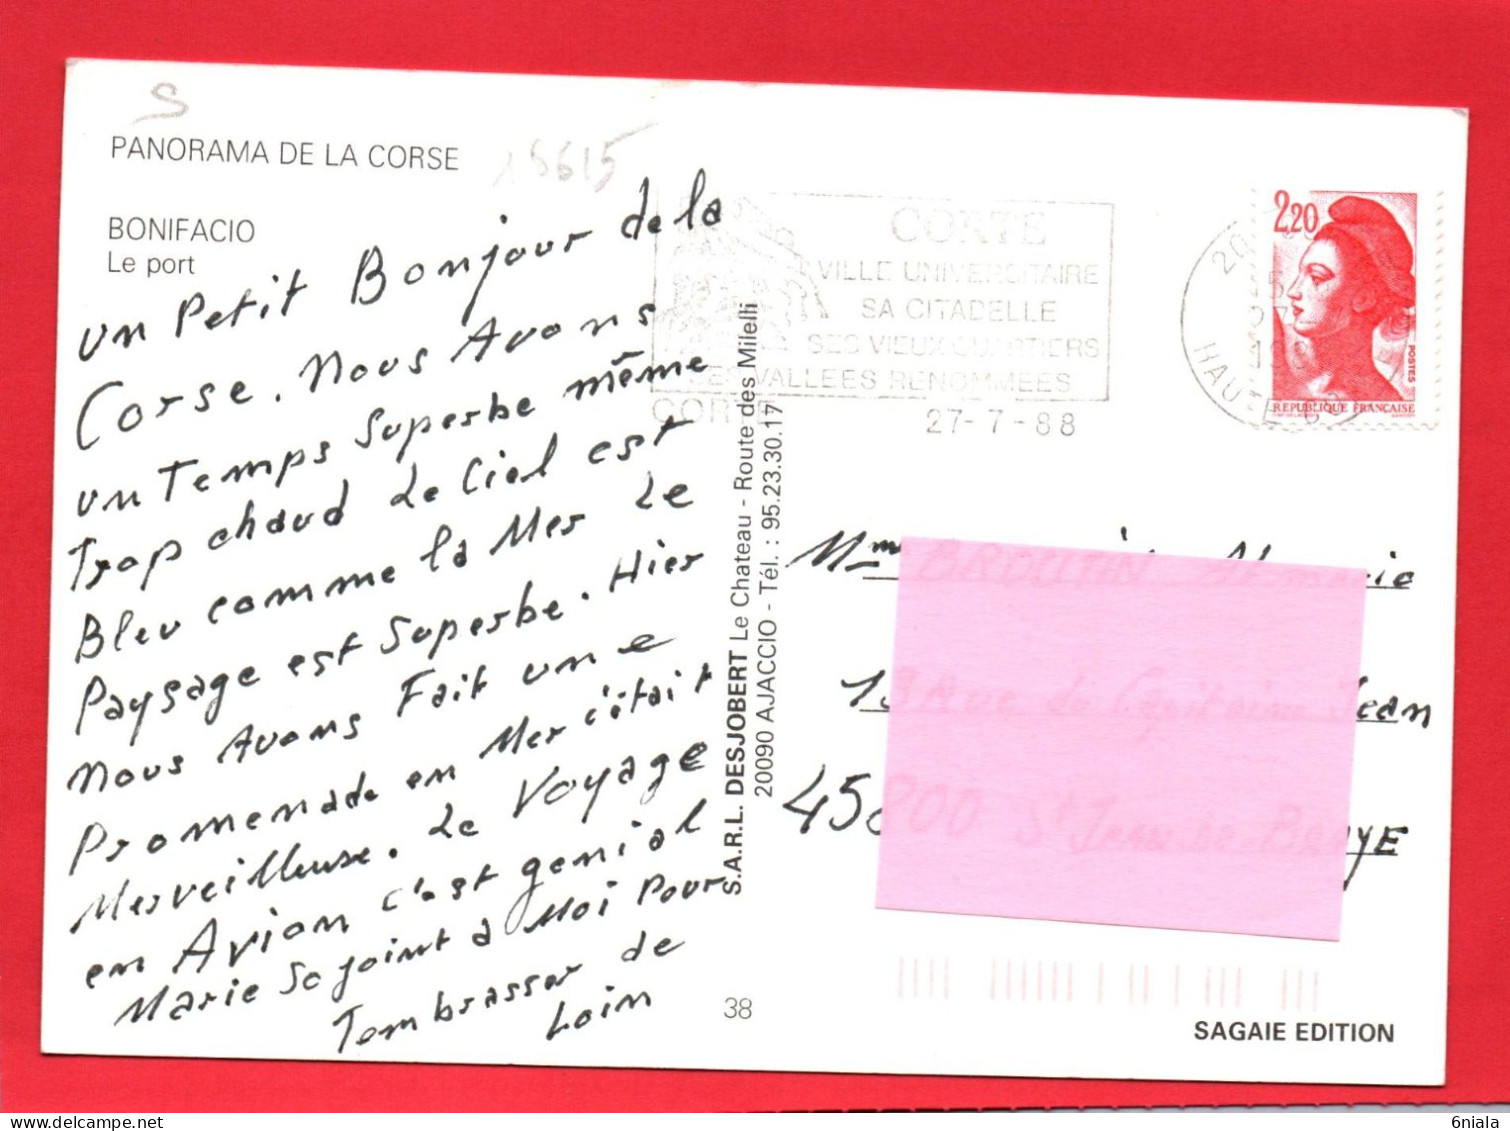 PANORAMA DE LA CORSE
15615
BONIFACIO
Le port
un Petit Bonjour de la
Corse. Nous Avons
un Temps Superbe même
Trop chaud Le Ciel est
Bleu comme la Mer Le
Paysage est Superbe. Hier
nous Avons Fait une
Promenade en Mer c'était
Merveilleuse. Le Voyage
en Avion c'est genial
Marie So joint a Moi Pour
Tembrasser de
Loin
S.A.R.L. DESJOBERT Le Chateau - Route des Milelli
20090 AJACCIO - Tél. : 95.23.30.17
38
CORTE
VILLE UNIVERCITAIRE
SA CITADELLE
SES VIEUX QUARTIERS
SES VALLEES RENOMMEES
CORTE
27-7-88
2,20
POSTES
REPUBLIQUE FRANCAISE
Mme
Jean
45
YE
SAGAIE EDITION
6niala